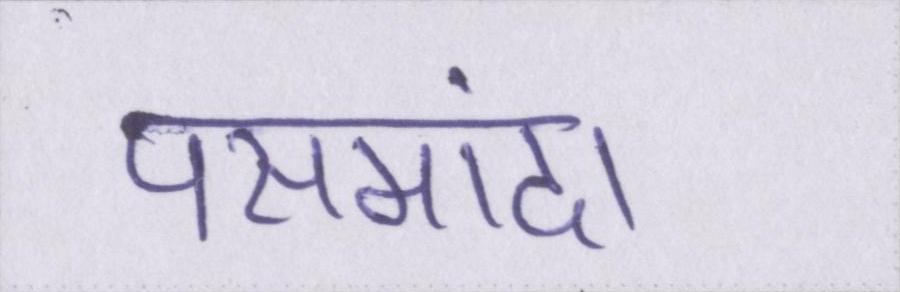 पसमांदा